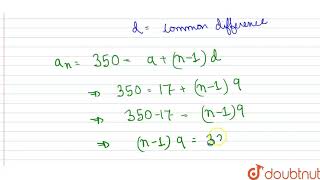 d= common difference
an = 350 = a+(n-1) d
⇒ 350 = 17 + (n-1) 9
⇒ 350-17 = (n-1)9
⇒ (n-1) 9 = 3
doubtnut